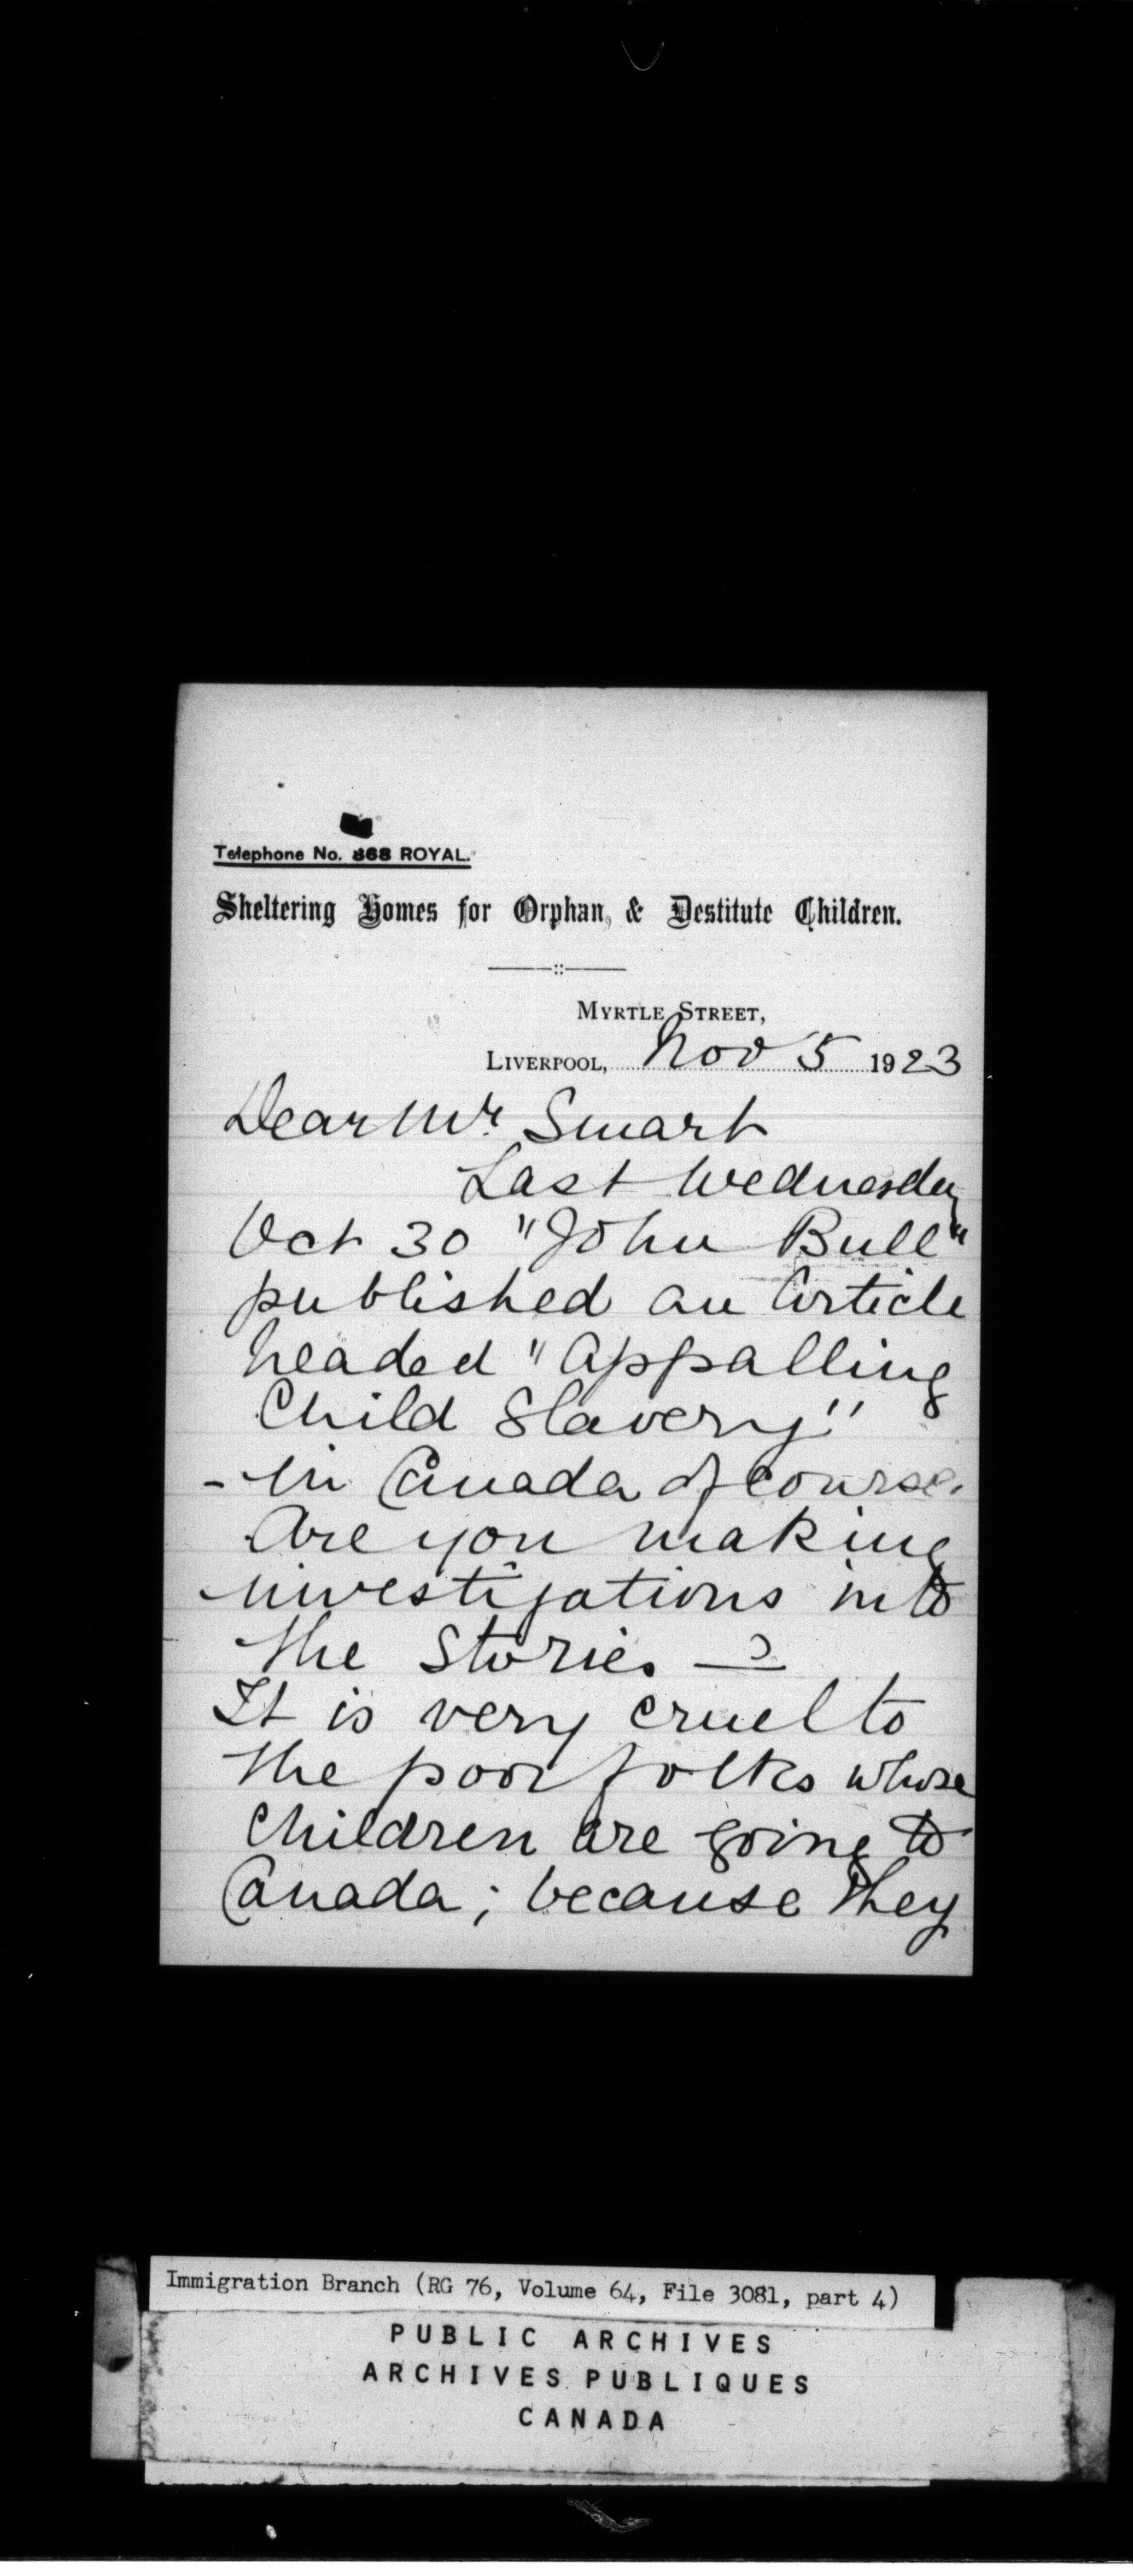 Telephone No. 868 ROYAL.
Sheltering Homes for Orphan, & Destitute Children.
MYRTLE STREET,
LIVERPOOL, Nov 5 1923
Dear Mr. Smart
Last Wednesday
Oct 30 "John Bull"
published an Article
headed "Appalling
Child Slavery"
- in Canada of course.
Are you making
investigations into
the stories — ?
It is very cruel to
the poor folks whose
children are going to
Canada; because they
Immigration Branch (RG 76, Volume 64, File 3081, part 4)
PUBLIC ARCHIVES
ARCHIVES PUBLIQUES
CANADA